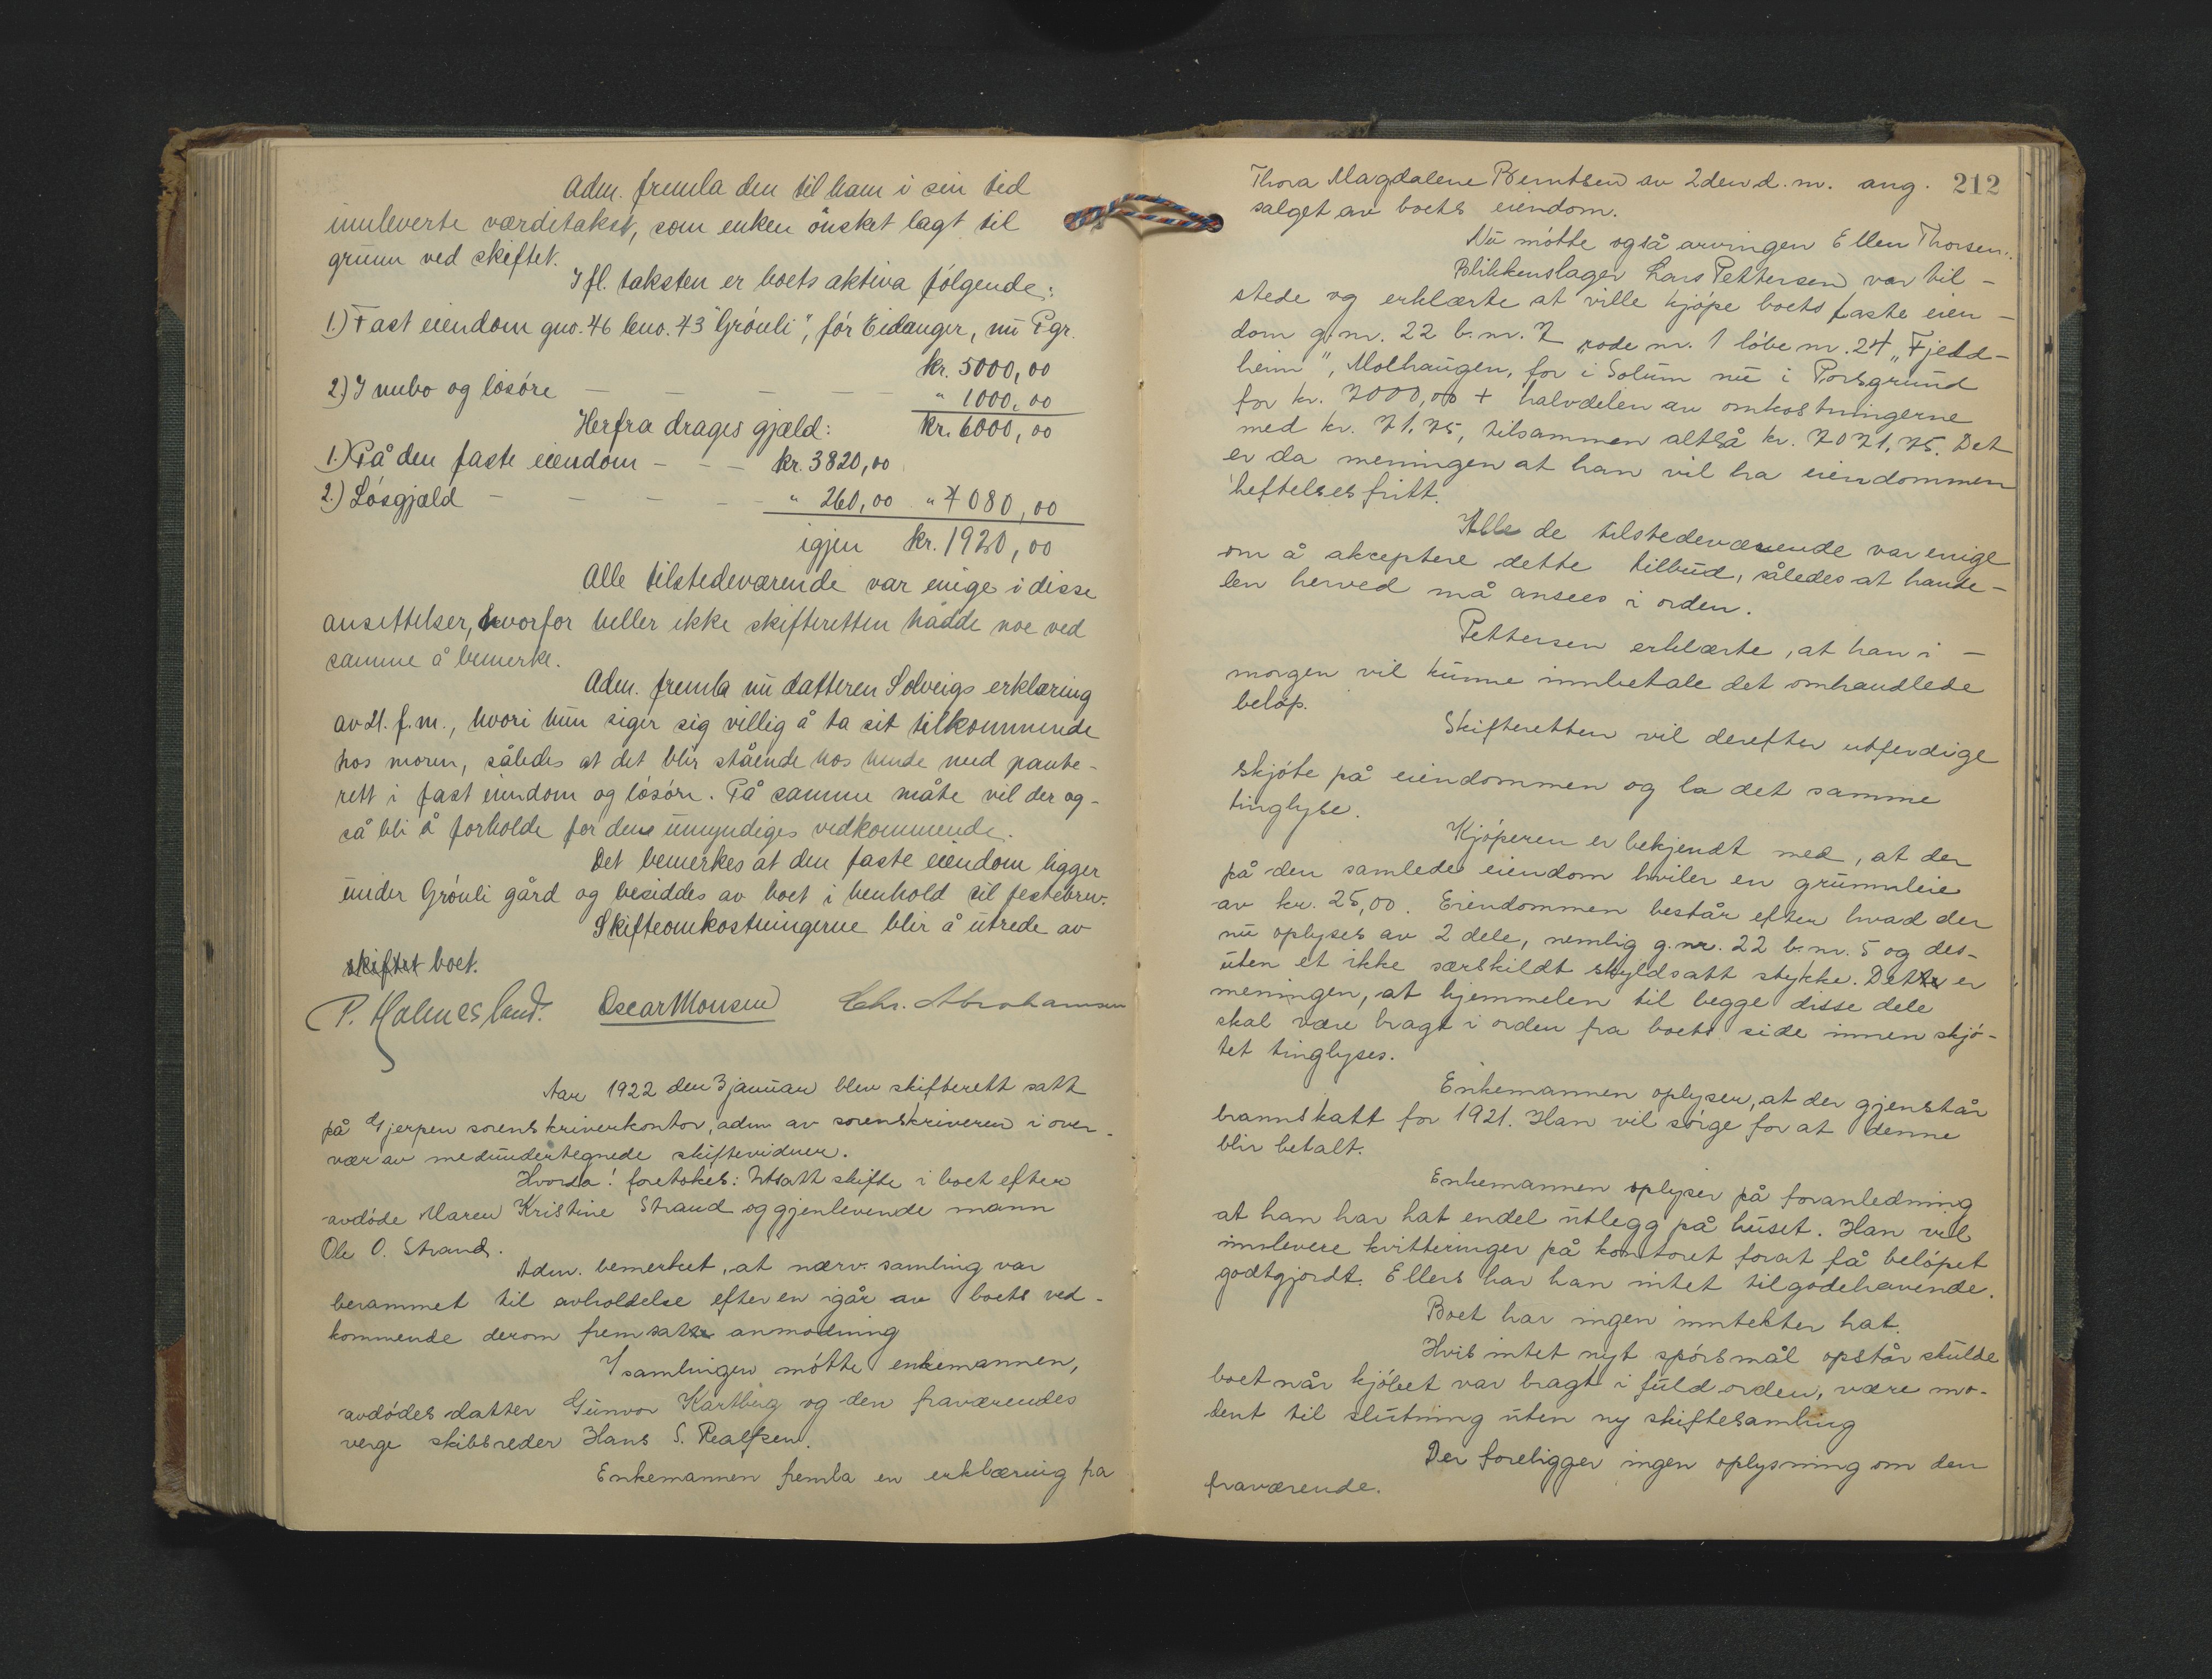 Adm. fremla den til ham i sin tid
innleverte værditakst, som enken ønsket lagt til
grunn ved skiftet.
Ifl. taksten er boets aktiva følgende:
1.) Fast eiendom gno. 46 bno. 43 "Grønli", før Eidanger, nu Pgr.
kr. 5000,00
2.) Innbo og løsøre — — — — " 1000,00
Herfra drages gjæld: kr. 6000,00
1.) På den faste eiendom - - - kr. 3820,00
2.) Løsgjæld - - - - - " 260,00 " 4080,00
igjen kr. 1920,00
Alle tilstedeværende var enige i disse
ansettelser, hvorfor heller ikke skifteretten hadde noe ved
samme å bemerke.
Adm. fremla nu datteren Solveigs erklæring
av 21. f.m., hvori hun siger sig villig å ta sit tilkommende
hos moren, således at det blir stående hos hende med pante-
rett i fast eiendom og løsøre. På samme måte vil der og-
så bli å forholde for den umyndiges vedkommende.
Det bemerkes at den faste eiendom ligger
under Grønli gård og besiddes av boet i henhold til festebrev.
Skifteomkostningerne blir å utrede av
skiftet boet.
P. Holmesland. Oscar Monsen Chr. Abrahamsen
Aar 1922 den 3 januar blev skifterett satt
på Gjerpen sorenskriverkontor, adm. av sorenskriveren i over-
vær av medundertegnede skiftevidner.
Hvorda! foretokes: Utsatt skifte i boet efter
avdøde Maren Kristine Strand og gjenlevende mann
Ole O. Strand.
Adm. bemerket, at nærv. samling var
berammet til avholdelse efter en igår av boets ved-
kommende derom fremsatt anmodning
I samlingen møtte enkemannen,
avdødes datter Gunvor Kartberg og den fraværendes
verge skibsreder Hans S. Realfsen.
Enkemannen fremla en erklæring fra
212
Thora Magdalene Berntsen av 2den d.m. ang.
salget av boets eiendom.
Nu møtte også arvingen Ellen Thorsen.
Blikkenslager Lars Pettersen var til-
stede og erklærte at ville kjøpe boets faste eien-
dom g.nr. 22 b.nr. 7 rode nr. 1 løbe nr. 24 „Fjeld-
heim", Molhaugen, før i Solum nu i Porsgrund
for kr. 7000,00 + halvdelen av omkostningerne
med kr. 71,75, tilsammen altså kr. 7071,75. Det
er da meningen at han vil ha eiendommen
heftelsesfritt.
Alle de tilstedeværende var enige
om å akceptere dette tilbud, således at hande-
len herved må ansees i orden.
Pettersen erklærte, at han i-
morgen vil kunne innbetale det omhandlede
beløp.
Skifteretten vil derefter utferdige
skjøte på eiendommen og la det samme
tinglyse.
Kjøperen er bekjendt med, at der
på den samlede eiendom hviler en grunnleie
av kr. 25,00. Eiendommen består efter hvad der
nu oplyses av 2 dele, nemlig g.nr. 22 b.nr. 5 og des-
uten et ikke særskildt skyldsatt stykke. Det er
meningen, at hjemmelen til begge disse dele
skal være bragt i orden fra boets side innen skjø-
tet tinglyses.
Enkemannen oplyser, at der gjenstår
brannskatt for 1921. Han vil sørge for at denne
blir betalt.
Enkemannen oplyser på foranledning
at han har hat endel utlegg på huset. Han vil
innlevere kvitteringer på kontoret forat få beløpet
godtgjordt. Ellers har han intet tilgodehavende.
Boet har ingen inntekter hat.
Hvis intet nyt spørsmål opstår skulde
boet når kjøpet var bragt i fuld orden, være mo-
dent til slutning uten ny skiftesamling
Der foreligger ingen oplysning om den
fraværende.